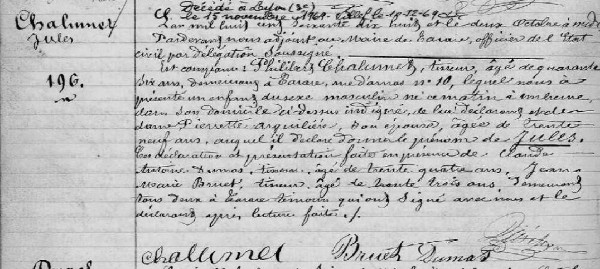 Chalumet
Jules
196.
Décédé à Lyon (3e)
le 15 novembre 1969.
L'an mil huit cent soixante dix huit et le deux Octobre à midi
Pardevant nous adjoint au Maire de Tarare, officier de l'Etat
civil par délégation soussigné.
Est comparu Philibert Chalumet, tineur, âgé de quarante
six ans, demeurant à Tarare, rue Damas no 10, lequel nous a
présenté un enfant du sexe masculin né ce matin à une heure
dans son domicile ci-dessus indiqué, de lui déclarant et de
dame Pierrette Arquillière, son épouse, âgée de trente
neuf ans, auquel il déclare donner le prénom de Jules.
Ces déclaration et présentation faites en présence de Claude
Antoine Dumas, tineur, âgé de trente quatre ans, Jean
Marie Bruet, tineur, âgé de trente trois ans, demeurant
tous deux à Tarare témoins qui ont signé avec nous et le
déclarant après lecture faite. /.
Chalumet Bruet Dumas